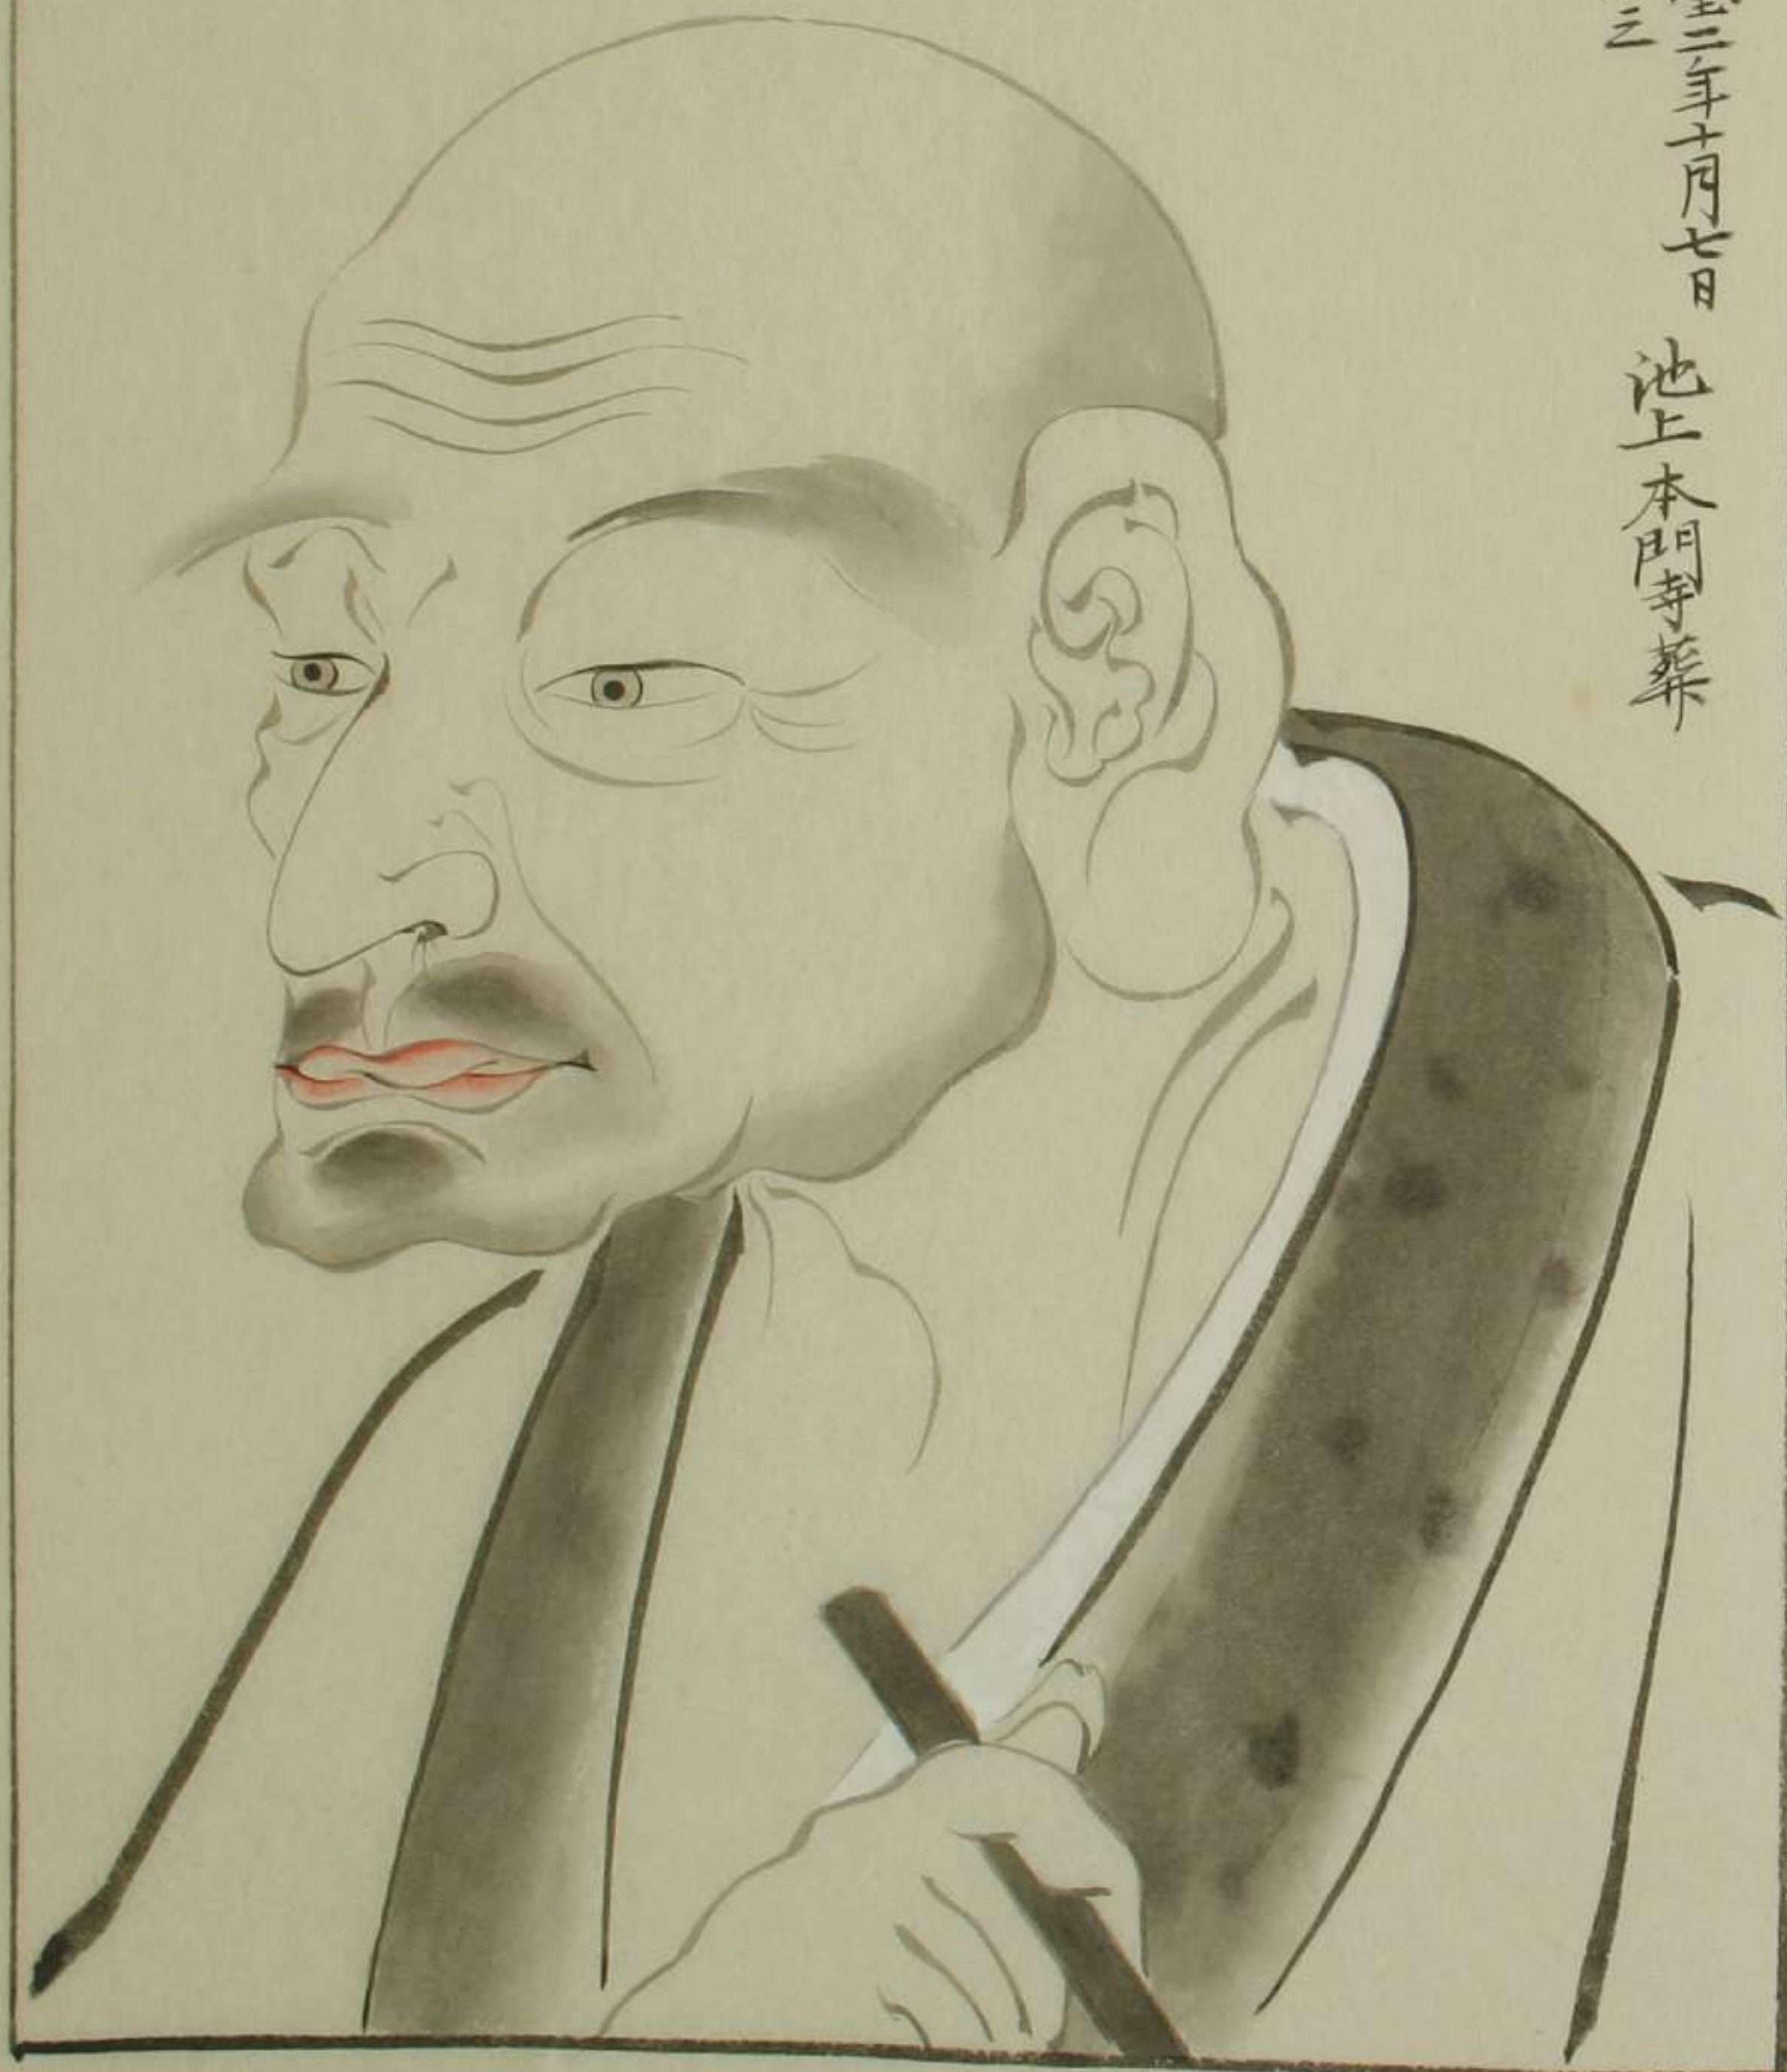 二年十月七日 池上本門寺葬
三